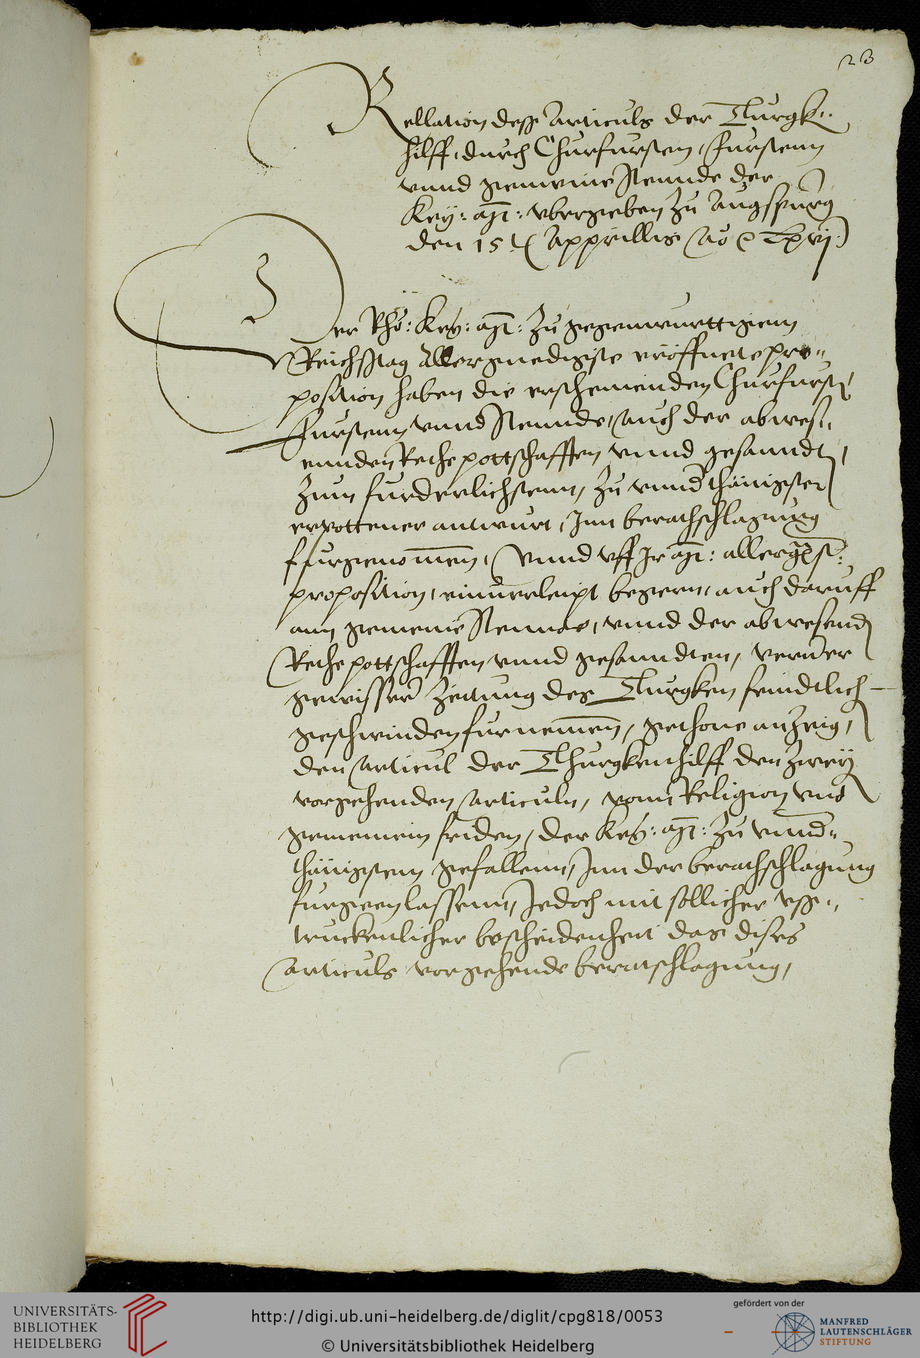 23
Rellation dess Articuls der Turgk:
hilff, durch Churfursten, Furstenn
vnnd gemeine Stennde der
Key: Mt: vbergeben zu Augspurg
den 15 t Apprillis Ao
Der Rho: Key: Mt: zu gegenwurttigem
Reichsstag allergnedigste eröffnete pro-
position haben die erscheinenden Churfurst,
Furstenn vnnd Stennde, auch der abwes-
ennden Rethe pottschafften vnnd gesanndt,
Zum furderlichstenn, zu vnnderthänigster
erpottener antwurt, Inn berathschlagung
furgenommen, Vnnd vff Ir Mt: allergst:
proposition, einuerleipt begern, auch daruff
ann gemeine Stennde, vnnd der abwesend
Rethe pottschafften vnnd gesanndten, verner
gewisser Zeittung des Turgken feindtlich
geschwinden furnemen, gethone anzeig,
den Articul der Thurgkenhilff den zwey
vorgehenden Articuln, vonn Religion vnd
gemeinem friden, der Key: Mt: zu vnnd-
thänigstem gefallenn, Inn der berathschlagung
furgeen lassenn, Jedoch mit sollicher vss-
truckenlicher bescheidenheit das dises
Articuls vorgehende beratschlagung,
UNIVERSITÄTS-
BIBLIOTHEK
HEIDELBERG
http://digi.ub.uni-heidelberg.de/diglit/cpg818/0053
© Universitätsbibliothek Heidelberg
gefördert von der
MANFRED
LAUTENSCHLÄGER
STIFTUNG